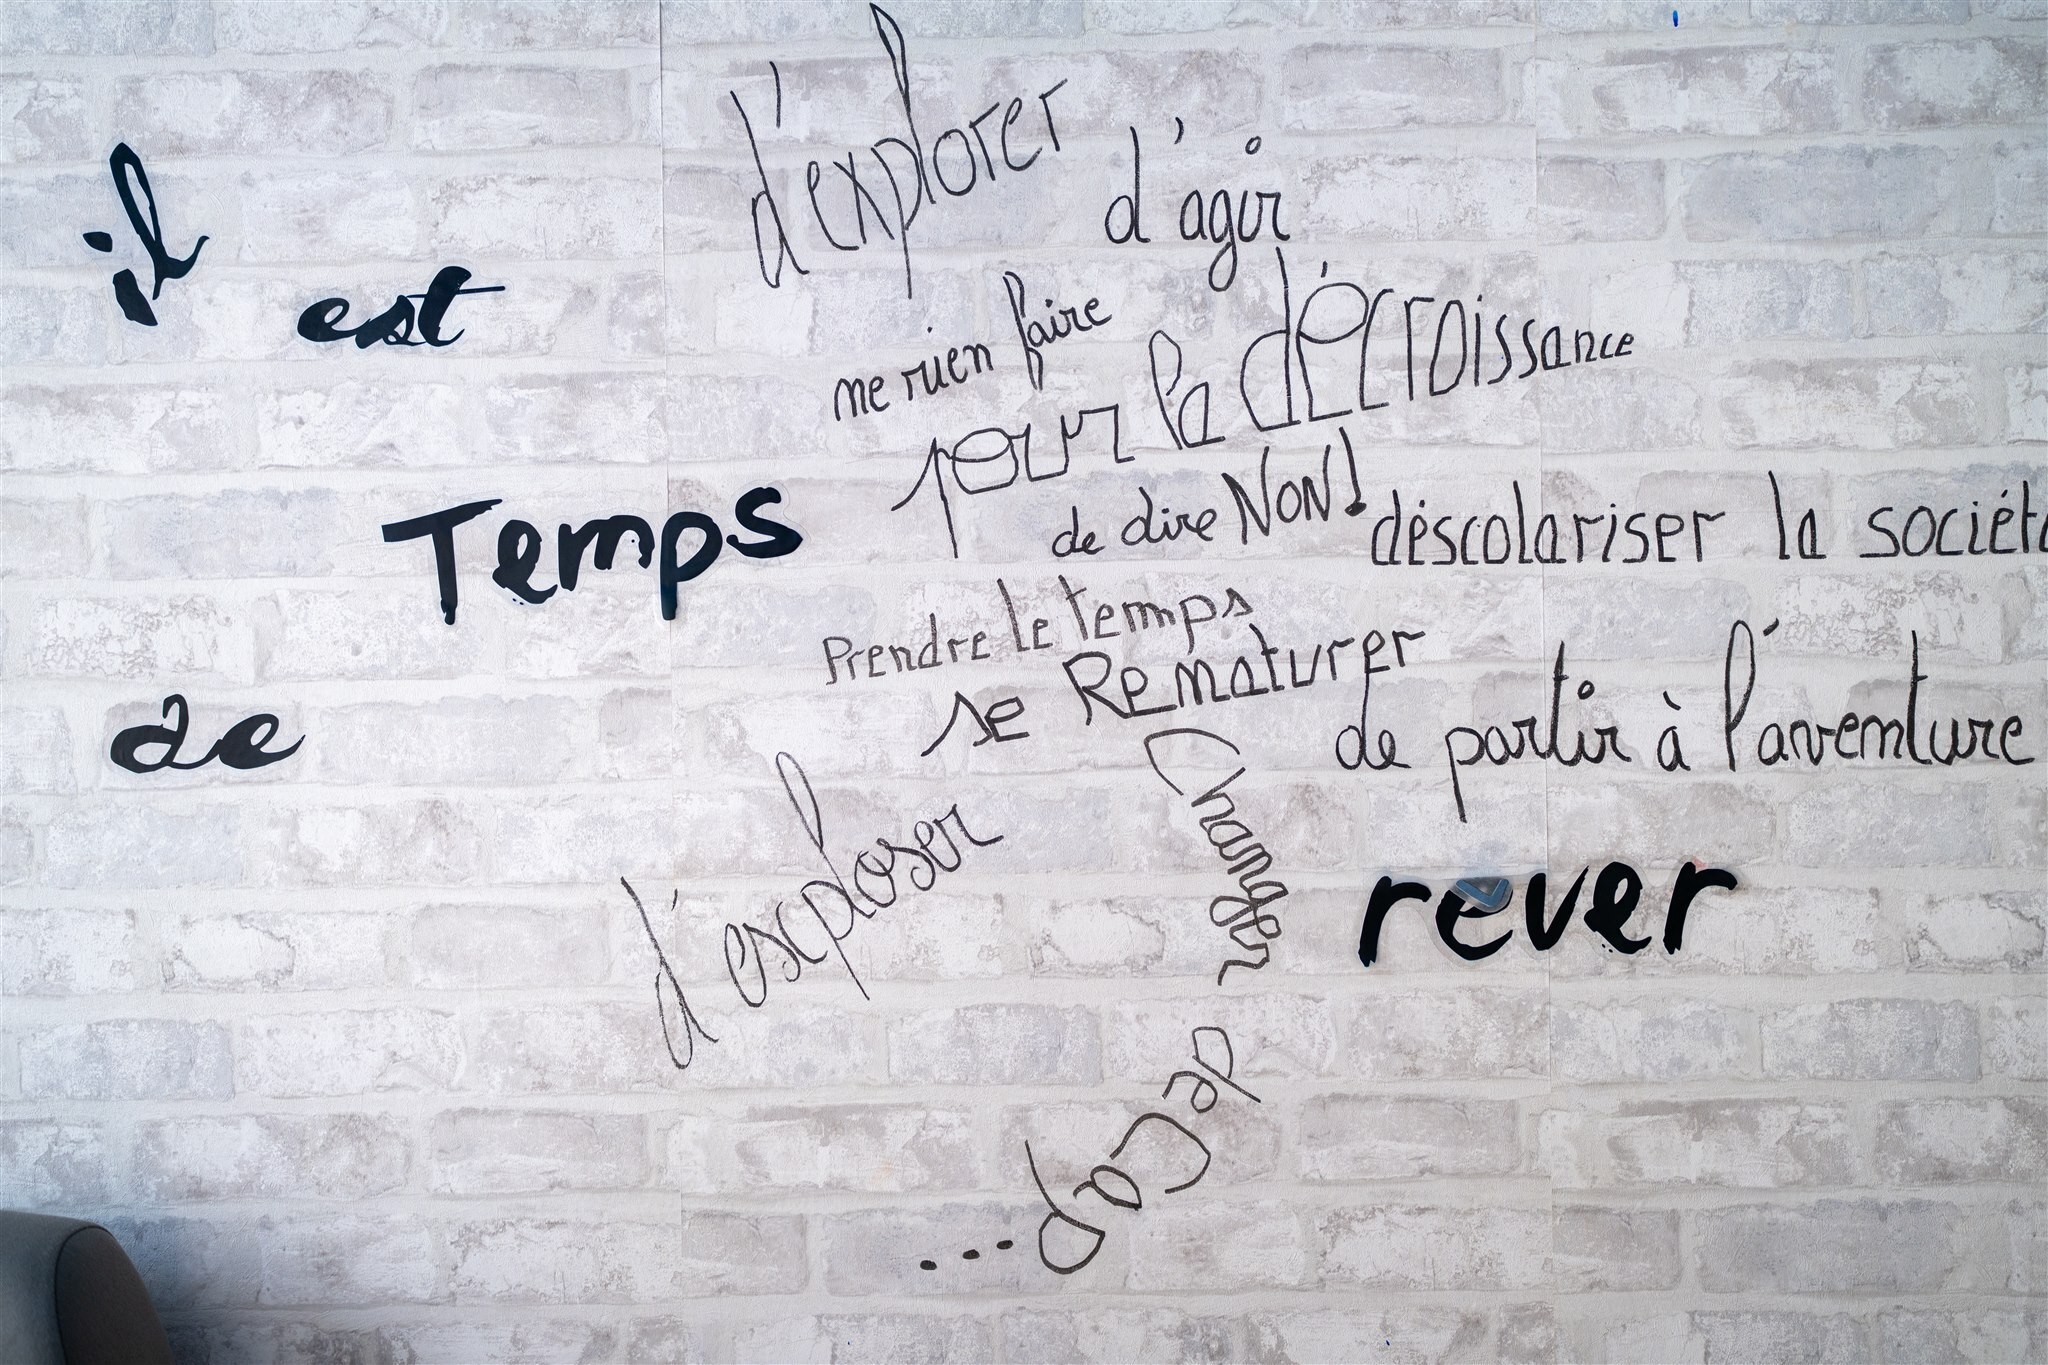 il
est
Temps
de
d'explorer
d'agir
ne rien faire
pour la décroissance
de dire NON!
déscolariser la société
Prendre le temps
se Renaturer
de partir à l'aventure
d'exploser
Changer
de Cap...
rêver